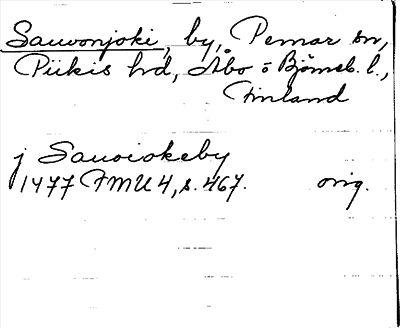 Sauvonjoki, by, Pemar sn,
Piikis hd, Åbo o Björneb. l.,
Finland
j Sauoiokeby
1477 FMU 4, s. 467. orig.